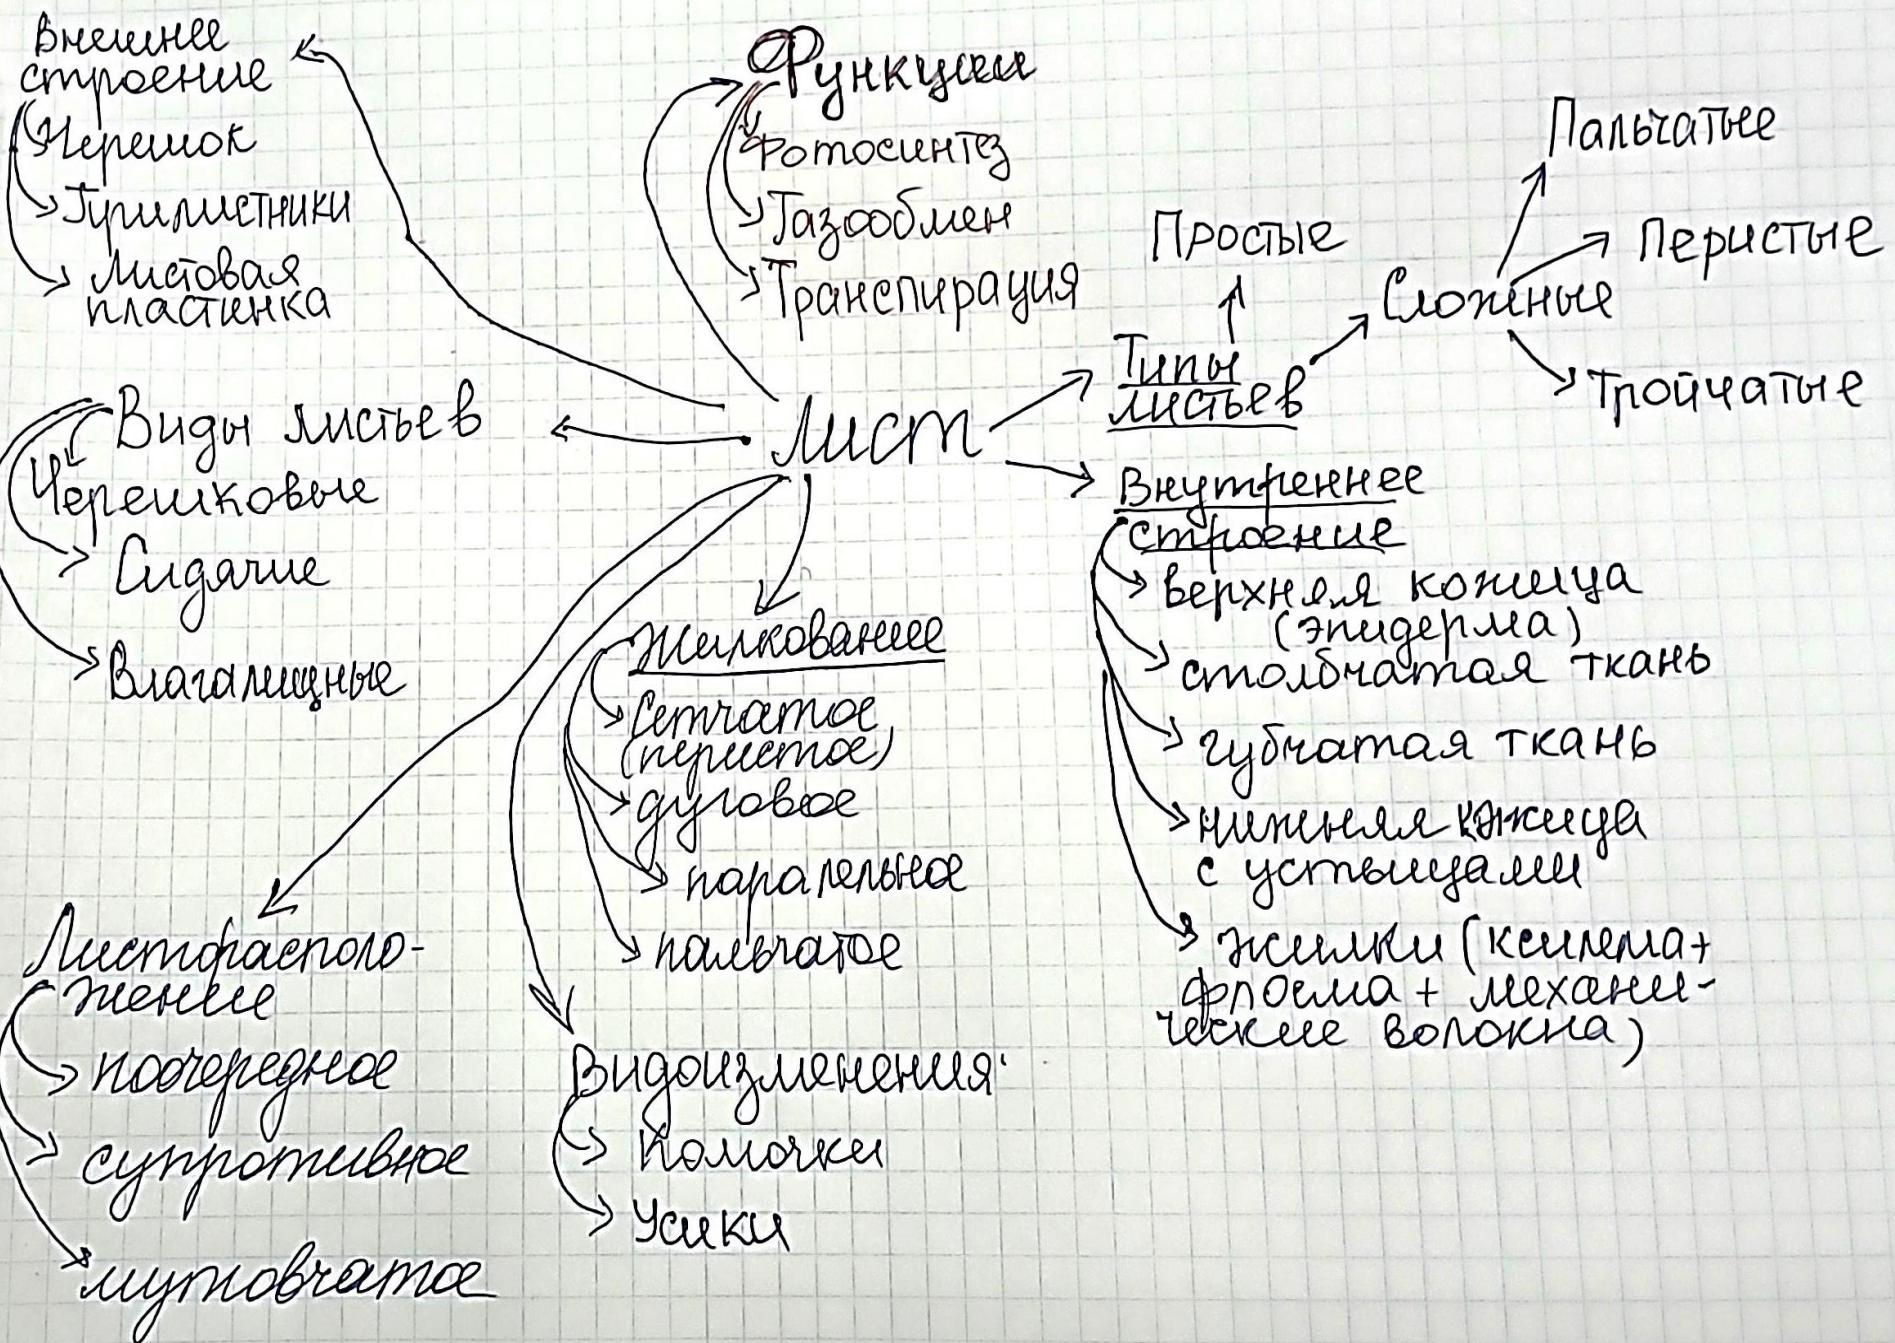 Внешнее
строение
Черешок
Прилистники
Листовая
пластинка
Функции
Фотосинтез
Газообмен
Транспирация
Лист
Типы
листьев
Простые
Сложные
Пальчатые
Перистые
Тройчатые
Виды листьев
Черешковые
Сидячие
Влагалищные
Внутреннее
строение
верхняя кожица
(эпидерма)
столбчатая ткань
губчатая ткань
нижняя кожица
с устьицами
жилки (ксилема+
флоэма + механи-
ческие волокна)
Жилкование
Сетчатое
(перистое)
дуговое
паралельное
пальчатое
Листорасполо-
жение
поочередное
супротивное
мутовчатое
Видоизменения:
Колючки
Усики